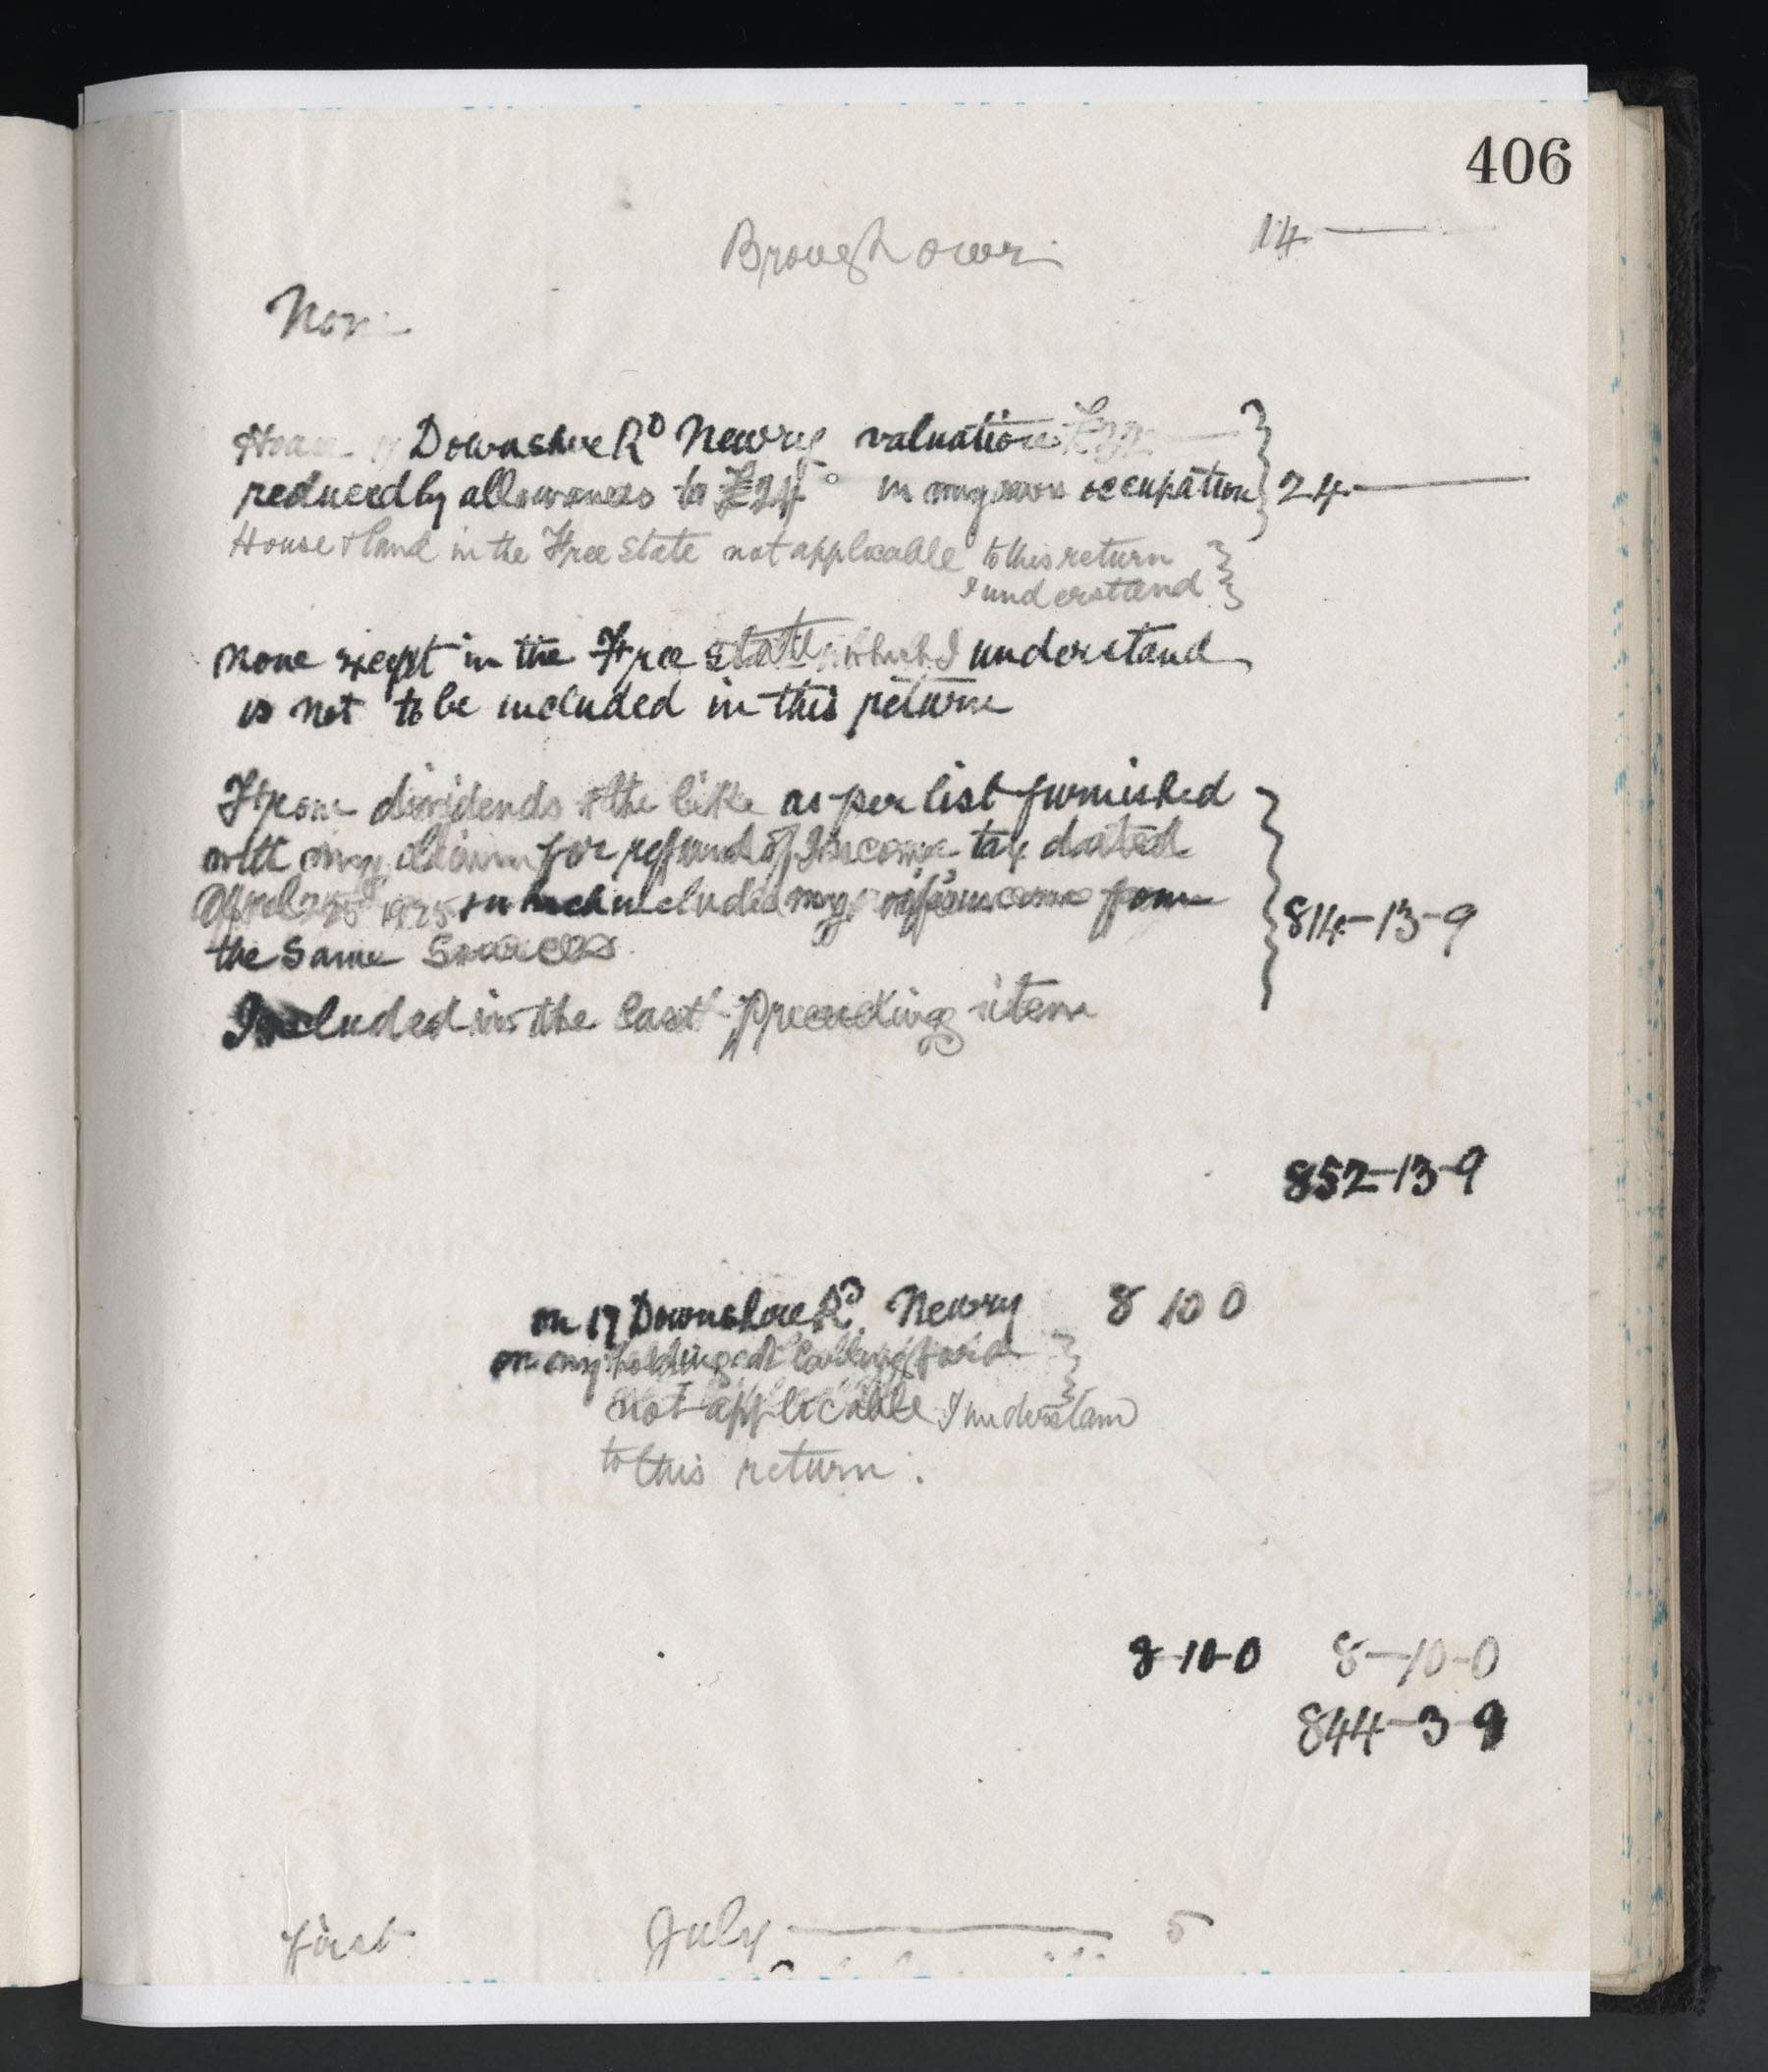 406
Brought over 14 —
None
House 17 Downshire Rd Newry valuation £32 —
reduced by allowances to £24 in my own occupation } 24 —
House & land in the Free State not applicable to this return
I understand }
None except in the Free State which I understand
is not to be included in this return
From dividends & the like as per list furnished
with my claim for refund of Income tax dated
April 25 1925 which includes my wife's income from 814-13-9
the same sources
Included in the last preceding item
852-13-9
on 17 Downshire Rd. Newry 8 10 0
on my holding at
not applicable I understand
to this return.
8-10-0 8-10-0
844-3-9
first July — 5